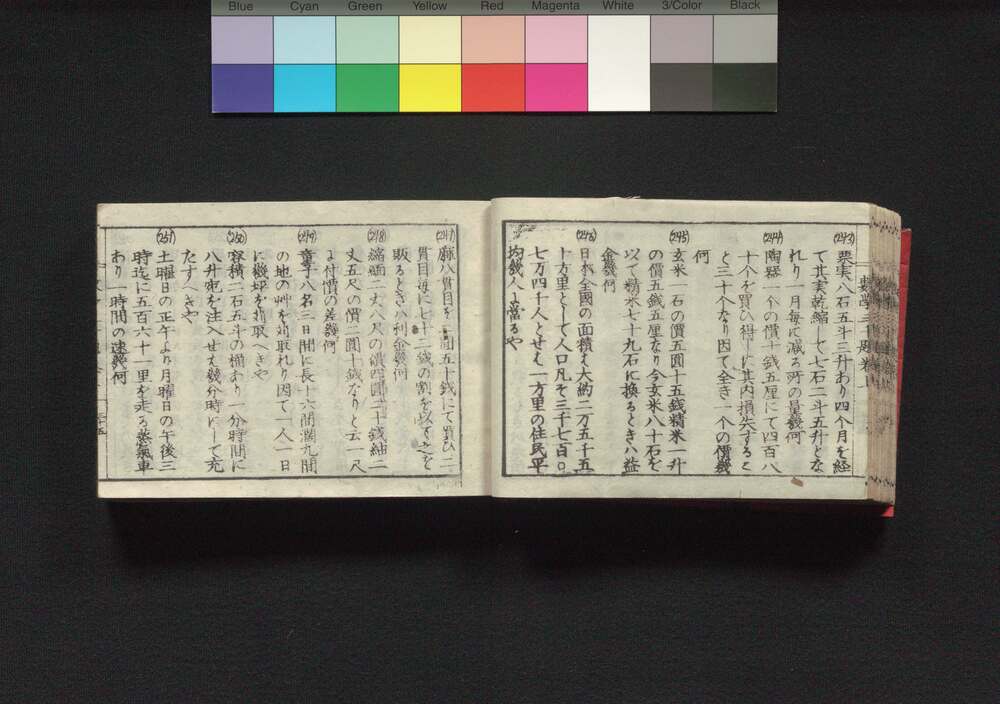 Blue Cyan Green Yellow Red Magenta White 3/Color Black
(243)
栗実八石五斗三升あり四個月を経
て其実乾縮して七石二斗五升とな
れり一月毎に減る所の量幾何
(244)
陶器一个の價十銭五厘にて四百八
十个を買ひ得しに其内損失するこ
と三十个なり因て全き一个の價幾
何
(245)
玄米一石の價五圓十五銭精米一升
の價五銭五厘なり今玄米八十石を
以て精米七十九石に換るときハ益
金幾何
(246)
日本全国の面積を大約二万五千五
十方里として人口凡そ三千七百〇
七万四千人とせば一方里の住民平
均幾人に當るや
(247)
麻八貫目を 圓五十銭にて買ひ二
貫目毎に七十二銭の割を以て之を
販るときハ利金幾何
(248)
縮緬二丈八尺の價四圓二十銭紬二
丈五尺の價二圓十銭なりと云一尺
に付價の差幾何
(249)
童子八名三日間に長十六間濶九間
の地の艸を刈取れり因て一人一日
に幾坪を刈取へきや
(250)
容積二石五斗の桶あり一分時間に
八升宛を注入せば幾分時にして充
たすへきや
(251)
土曜日の正午より月曜日の午後三
時迄に五百六十一里を走る蒸氣車
あり一時間の速幾何